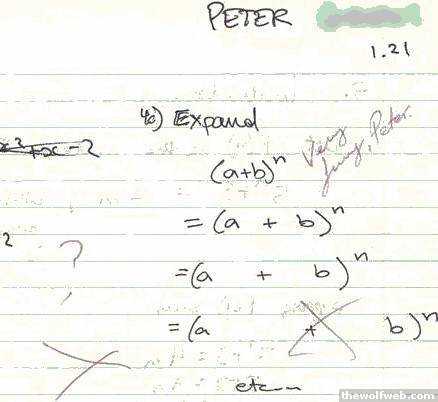 PETER
1.21
4c) Expand
x² + x - 2
(a+b)ⁿ
Very funny, Peter.
= (a + b)ⁿ
2
?
= (a + b)ⁿ
= (a + b)ⁿ
etc...
thewolfweb.com